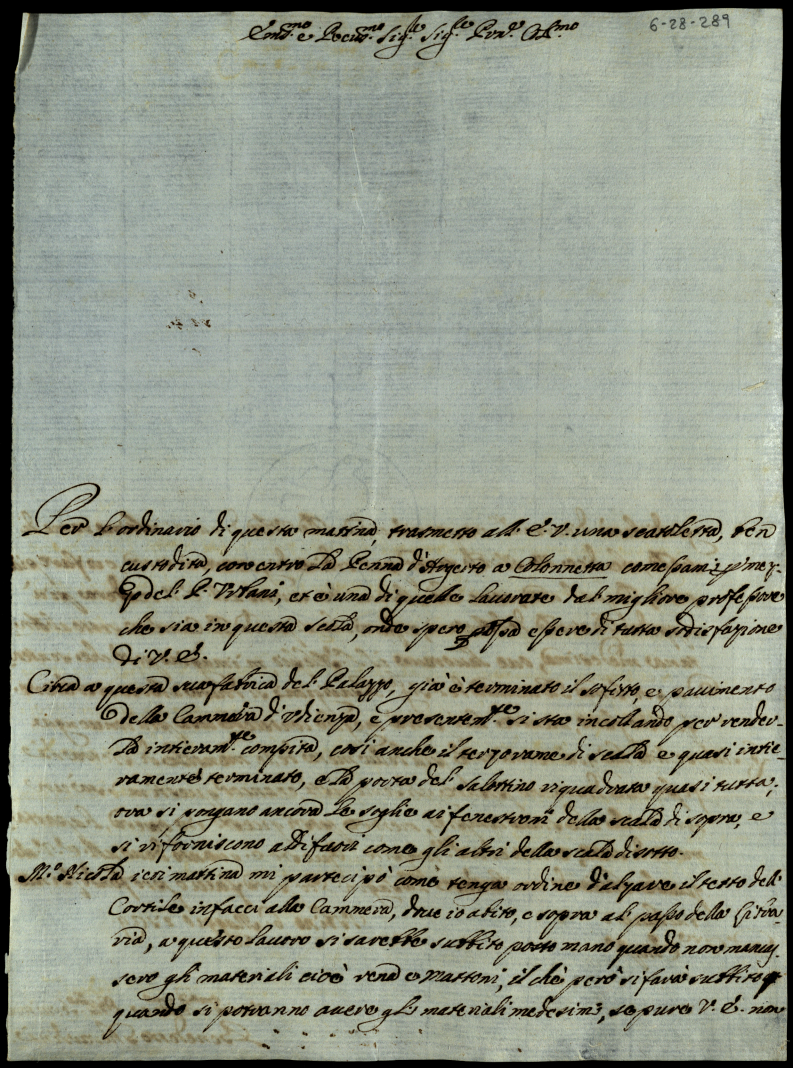 6-28-289
Em.mo e Re.mo Sig.re Sig.re P.ron Col.mo
Per l'ordinario di questa mattina, trasmetto all' E. V. una scatoletta, ben
custodita, con entro la Penna d'Argento a Colonnetta
del P. et è una di quelle lavorate dal migliore professore
che sia in questa onde spero possa essere di tutta sodisfazione
di V. E.
Circa a questa sua fabrica del Palazzo, già è terminato il sofitto e pavimento
della Cammera d'Udienza, e presentem.te si sta incollando per render-
la intieram.te compita, così anche il terzo rame di scala e quasi intie-
ramente terminato, e la porta del salottino riquadrata quasi tutta,
ora si pongano ancora le soglie ai fenestroni della scala di sopra, e
si riforniscono al di fuori come gli altri della scala di sotto.
M.o Nicola ieri mattina mi partecipò come tenga ordine d'alzare il tetto del
Cortile in facci alla Cammera, dove io abito, e sopra al passo della
a questo lavoro si sarebbe subbito posto mano quando non mancas-
sero gli materiali cioè rena e mattoni, il chè però si farà subbito
quando si potranno avere gli materiali medesimi, se pure V. E. non